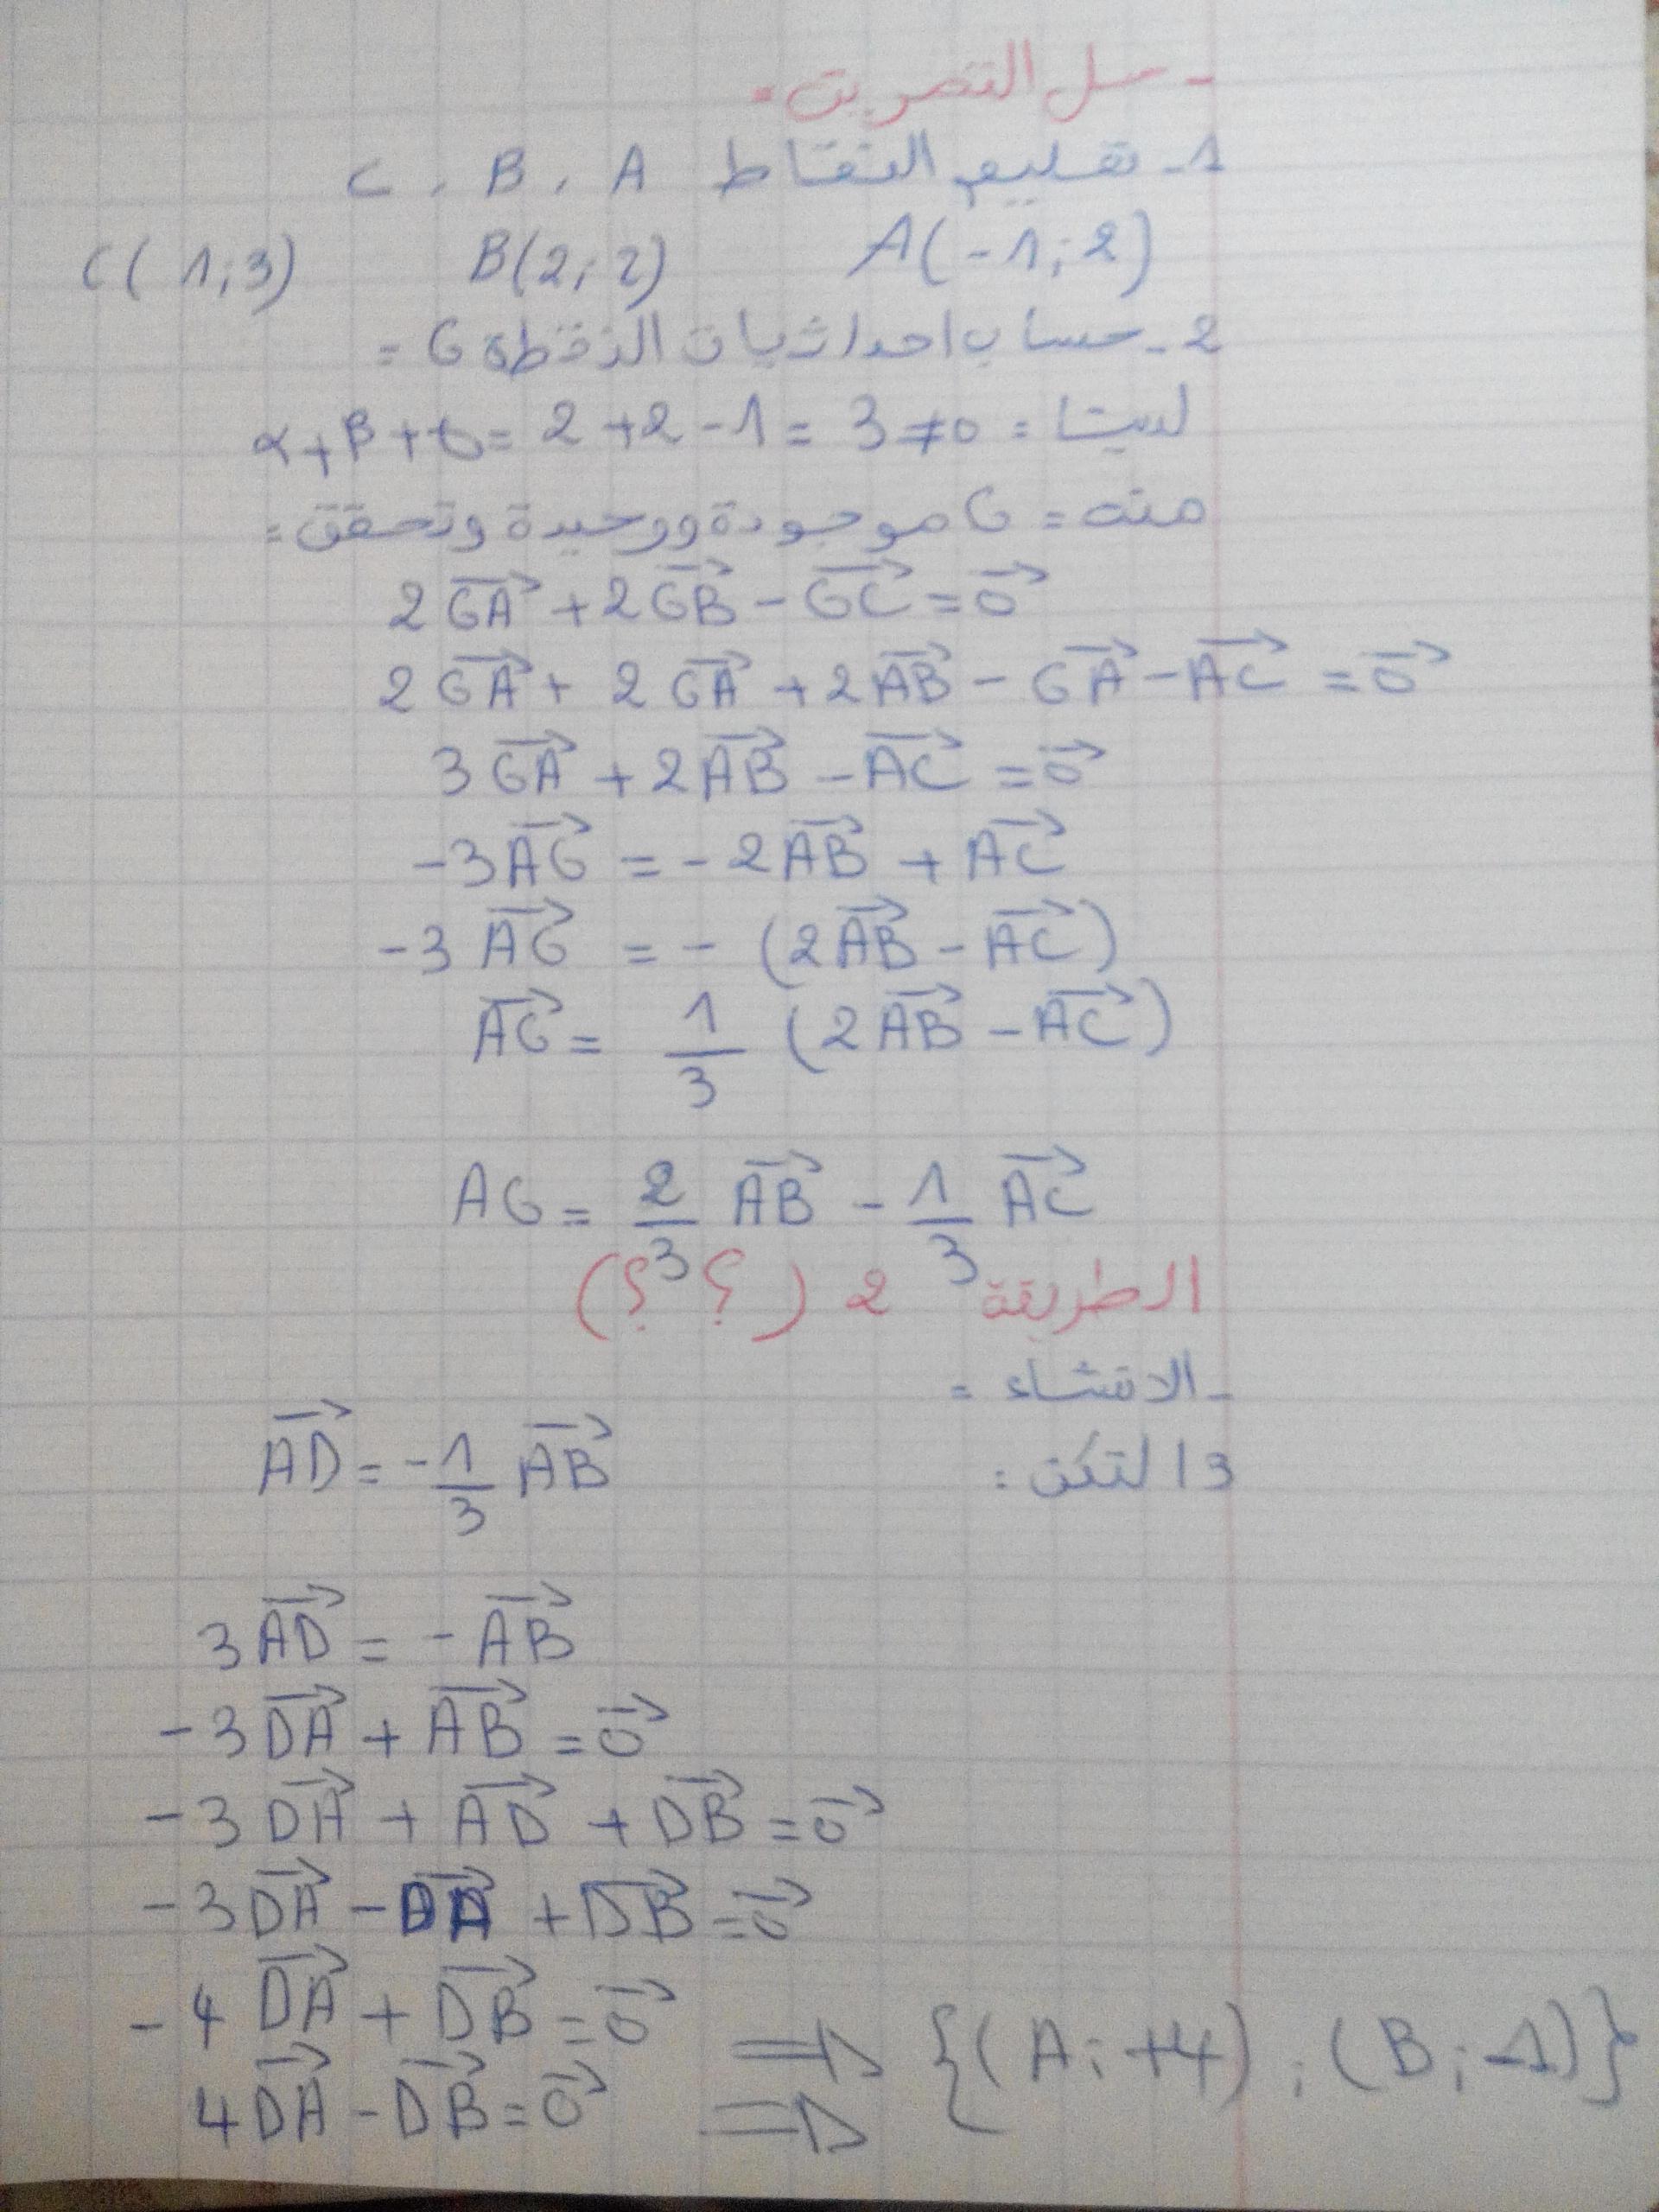 - حل التمرين =
1- تعليم النقاط A , B , C
A(-1;2) B(2;2) C(1;3)
2- حساب احداثيات النقطة G =
لدينا = α+β+γ = 2+2-1 = 3 ≠ 0
منه = G موجودة ووحيدة وتحقق =
2GA⃗ + 2GB⃗ - GC⃗ = 0⃗
2GA⃗ + 2GA⃗ + 2AB⃗ - GA⃗ - AC⃗ = 0⃗
3GA⃗ + 2AB⃗ - AC⃗ = 0⃗
-3AG⃗ = -2AB⃗ + AC⃗
-3AG⃗ = -(2AB⃗ - AC⃗)
AG⃗ = 1/3 (2AB⃗ - AC⃗)
AG = 2/3 AB⃗ - 1/3 AC⃗
الطريقة 2 (؟ ؟)
- الانشاء =
3| لتكن : AD⃗ = -1/3 AB⃗
3AD⃗ = -AB⃗
-3DA⃗ + AB⃗ = 0⃗
-3DA⃗ + AD⃗ + DB⃗ = 0⃗
-3DA⃗ - DA⃗ + DB⃗ = 0⃗
-4DA⃗ + DB⃗ = 0⃗ ⇒ {(A;+4);(B;-1)}
4DA⃗ - DB⃗ = 0⃗ ⇒